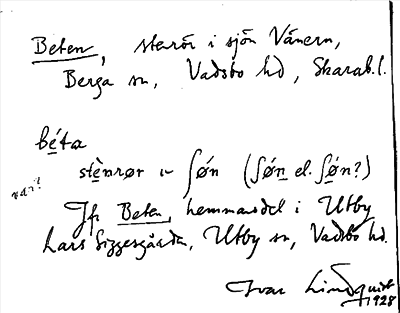 Beten, stenrör i sjön Vänern,
Berga sn, Vadsbo hd, Skarab.l.
béta
stènrør ı ʃøń (ʃøń el. ʃǿn?)
var?
Jfr Beten, hemmansdel i Utby
Lars Siggesgården, Utby sn, Vadsbo hd.
Ivar Lindquist
1928